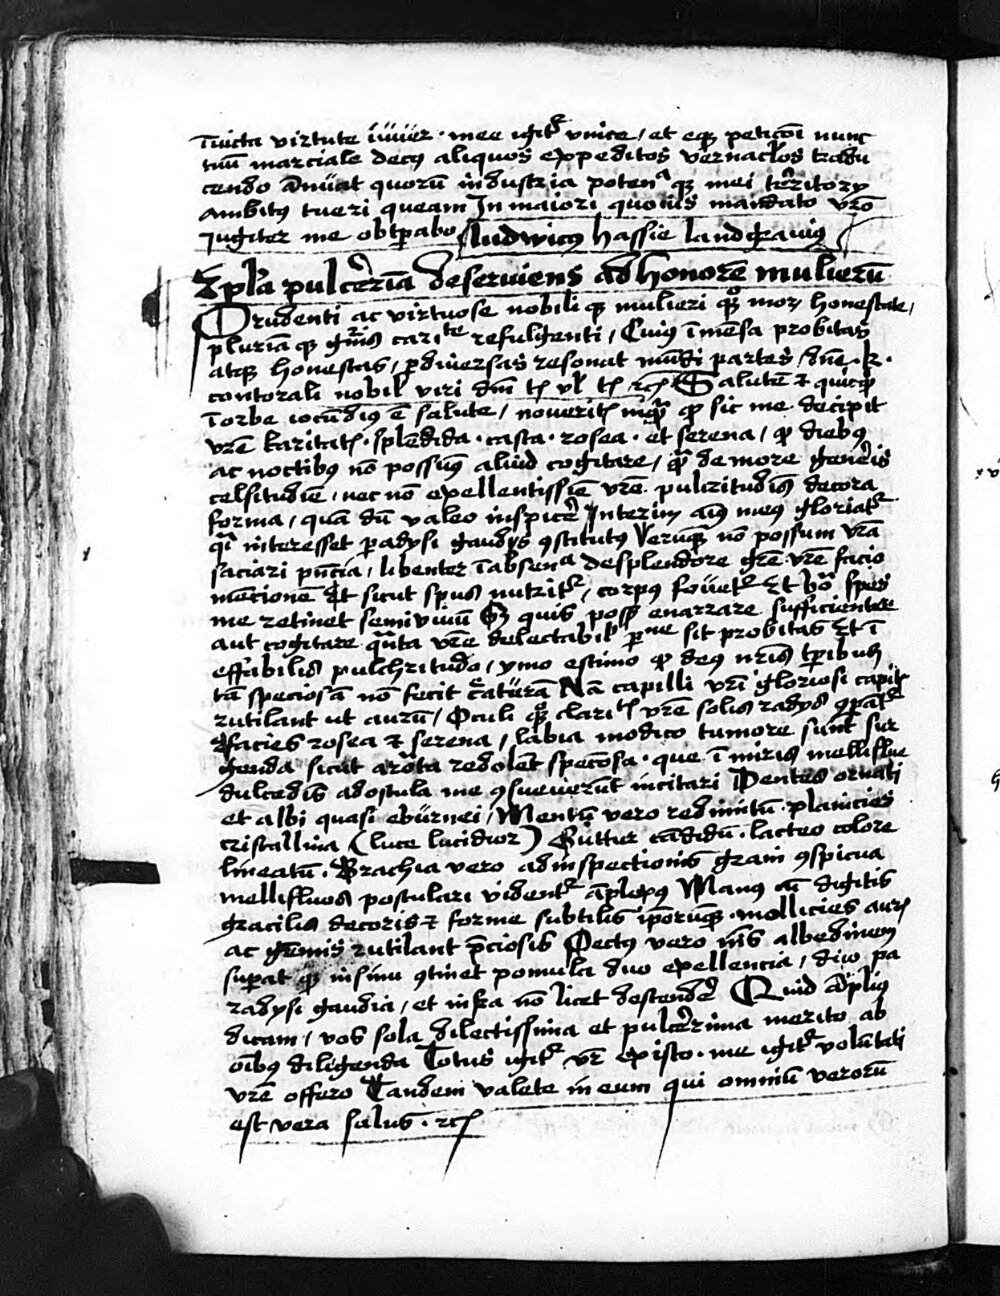 Invicta virtute mee igitr vnice / et eqz peticōi nunc
tuū marciale decus aliquos expeditos vernaclos tradu
cendo Annuat quorū industria poten^a qz mei territory
Ambitus tueri queam In maiori quouis mandato vrō
Iugiter me obtpabo ludwicus hassie landgrauius
Epla pulcerīa deseruiens ad honorē mulierū
Prudenti ac virtuose nobili qz mulieri morz honestate /
plurīa qz cari^te refulgenti / Cuius īmēsa probitas
atqz honestas / p diuersas resonat mūdi partes / dnē . k .
contorali nobil viri dnī tl vl tl rc Salutē et quicqd
I orbe iocūdius ē salute / noueritis inqm qd sic me decipit
vrē karitatis . splēdida . casta . rosea . et serena / qd diebus
ac noctibus nō possum aliud cogitare / qm de more generis
celsitudinē / nec nō excellentissie vrē pulcritudinis decora
forma / quā dū valeo inspicere Interim aius meus gloriatr
qsi interesset padysi gaudys 9stitutus Verumqz nō possum vrā
saciari pncia / libenter ī absen^a de splendore grē vrē facio
mētionē Et sicut spus nutritr / corpus fouetr Et spes
me retinet semiuiuū Sz quis poss enarrare sufficienter
aut cogitare qnta vrē delectabil sit probitas Et ī
effabilis pulchritudo / ymo estimo qd deus nris tpibus
tā speciosā nō fecit creaturā Nā capilli vri gloriosi capitis
rutilant ut aurū / Oculi clari vrē solis radys 9parātr
Facies rosea et serena / labia modico tumore sunt sur
genda sicut arōta redolēt speciosa . que ī miris melliflue
dulcedinis ad oscula me 9sueuerunt incitari Dentes ornati
et albi quasi eburnei / Mentū vero redimitū . planicies
cristallina (luce lucidior) Guttur cādidū . lacteo colore
lineatū . Brachia vero ad inspectionis gram 9spicua
mellifluos postulari videntr āplexus Manus cū digitis
gracilis decoris et forme subtilis ipōrumqz . mollicies auris
ac gēmis rutilant p̄ciosis Pectus vero niis albedinem
supat qz in sinu 9tinet pomula duo excellencia / dico pa
radysi gaudia / et infra nō licet descendere Quid āplius
dicam / vos sola dilectissima et pulcerrima merito ab
oībus diligenda Totus igitr vr existo . me igitr volūtati
vrē offero Tandem valete in eum qui omniū verorū
est vera salus . rc